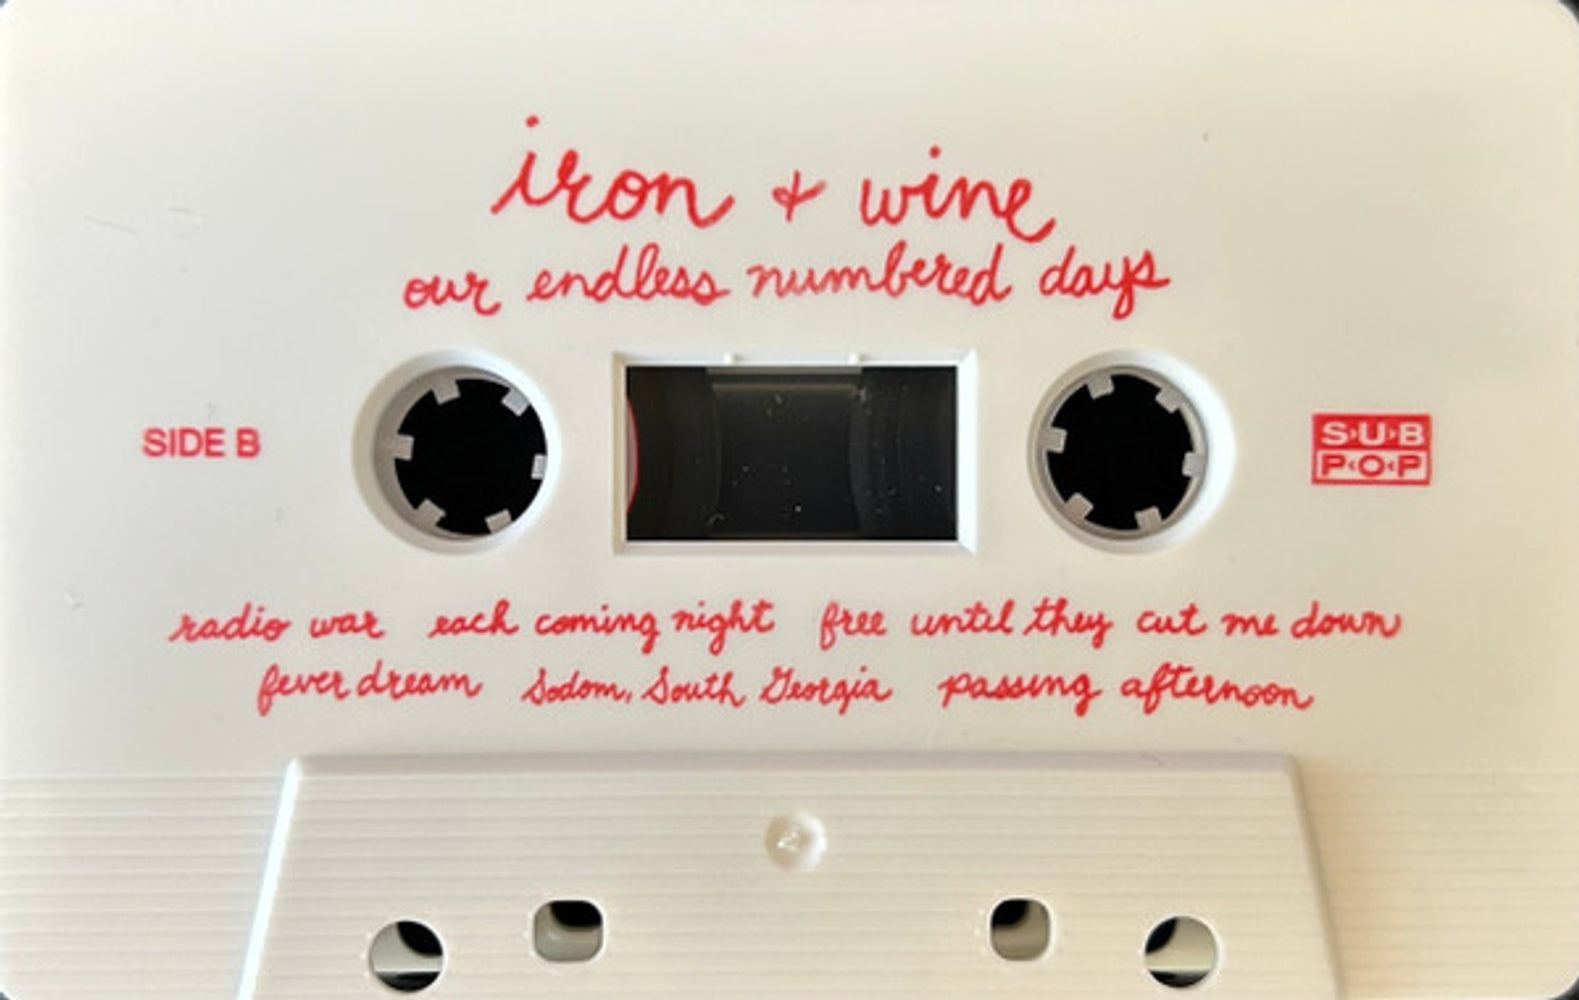 iron + wine
our endless numbered days
SIDE B
S›U›B
P‹O‹P
radio war each coming night free until they cut me down
fever dream Sodom, South Georgia passing afternoon
2